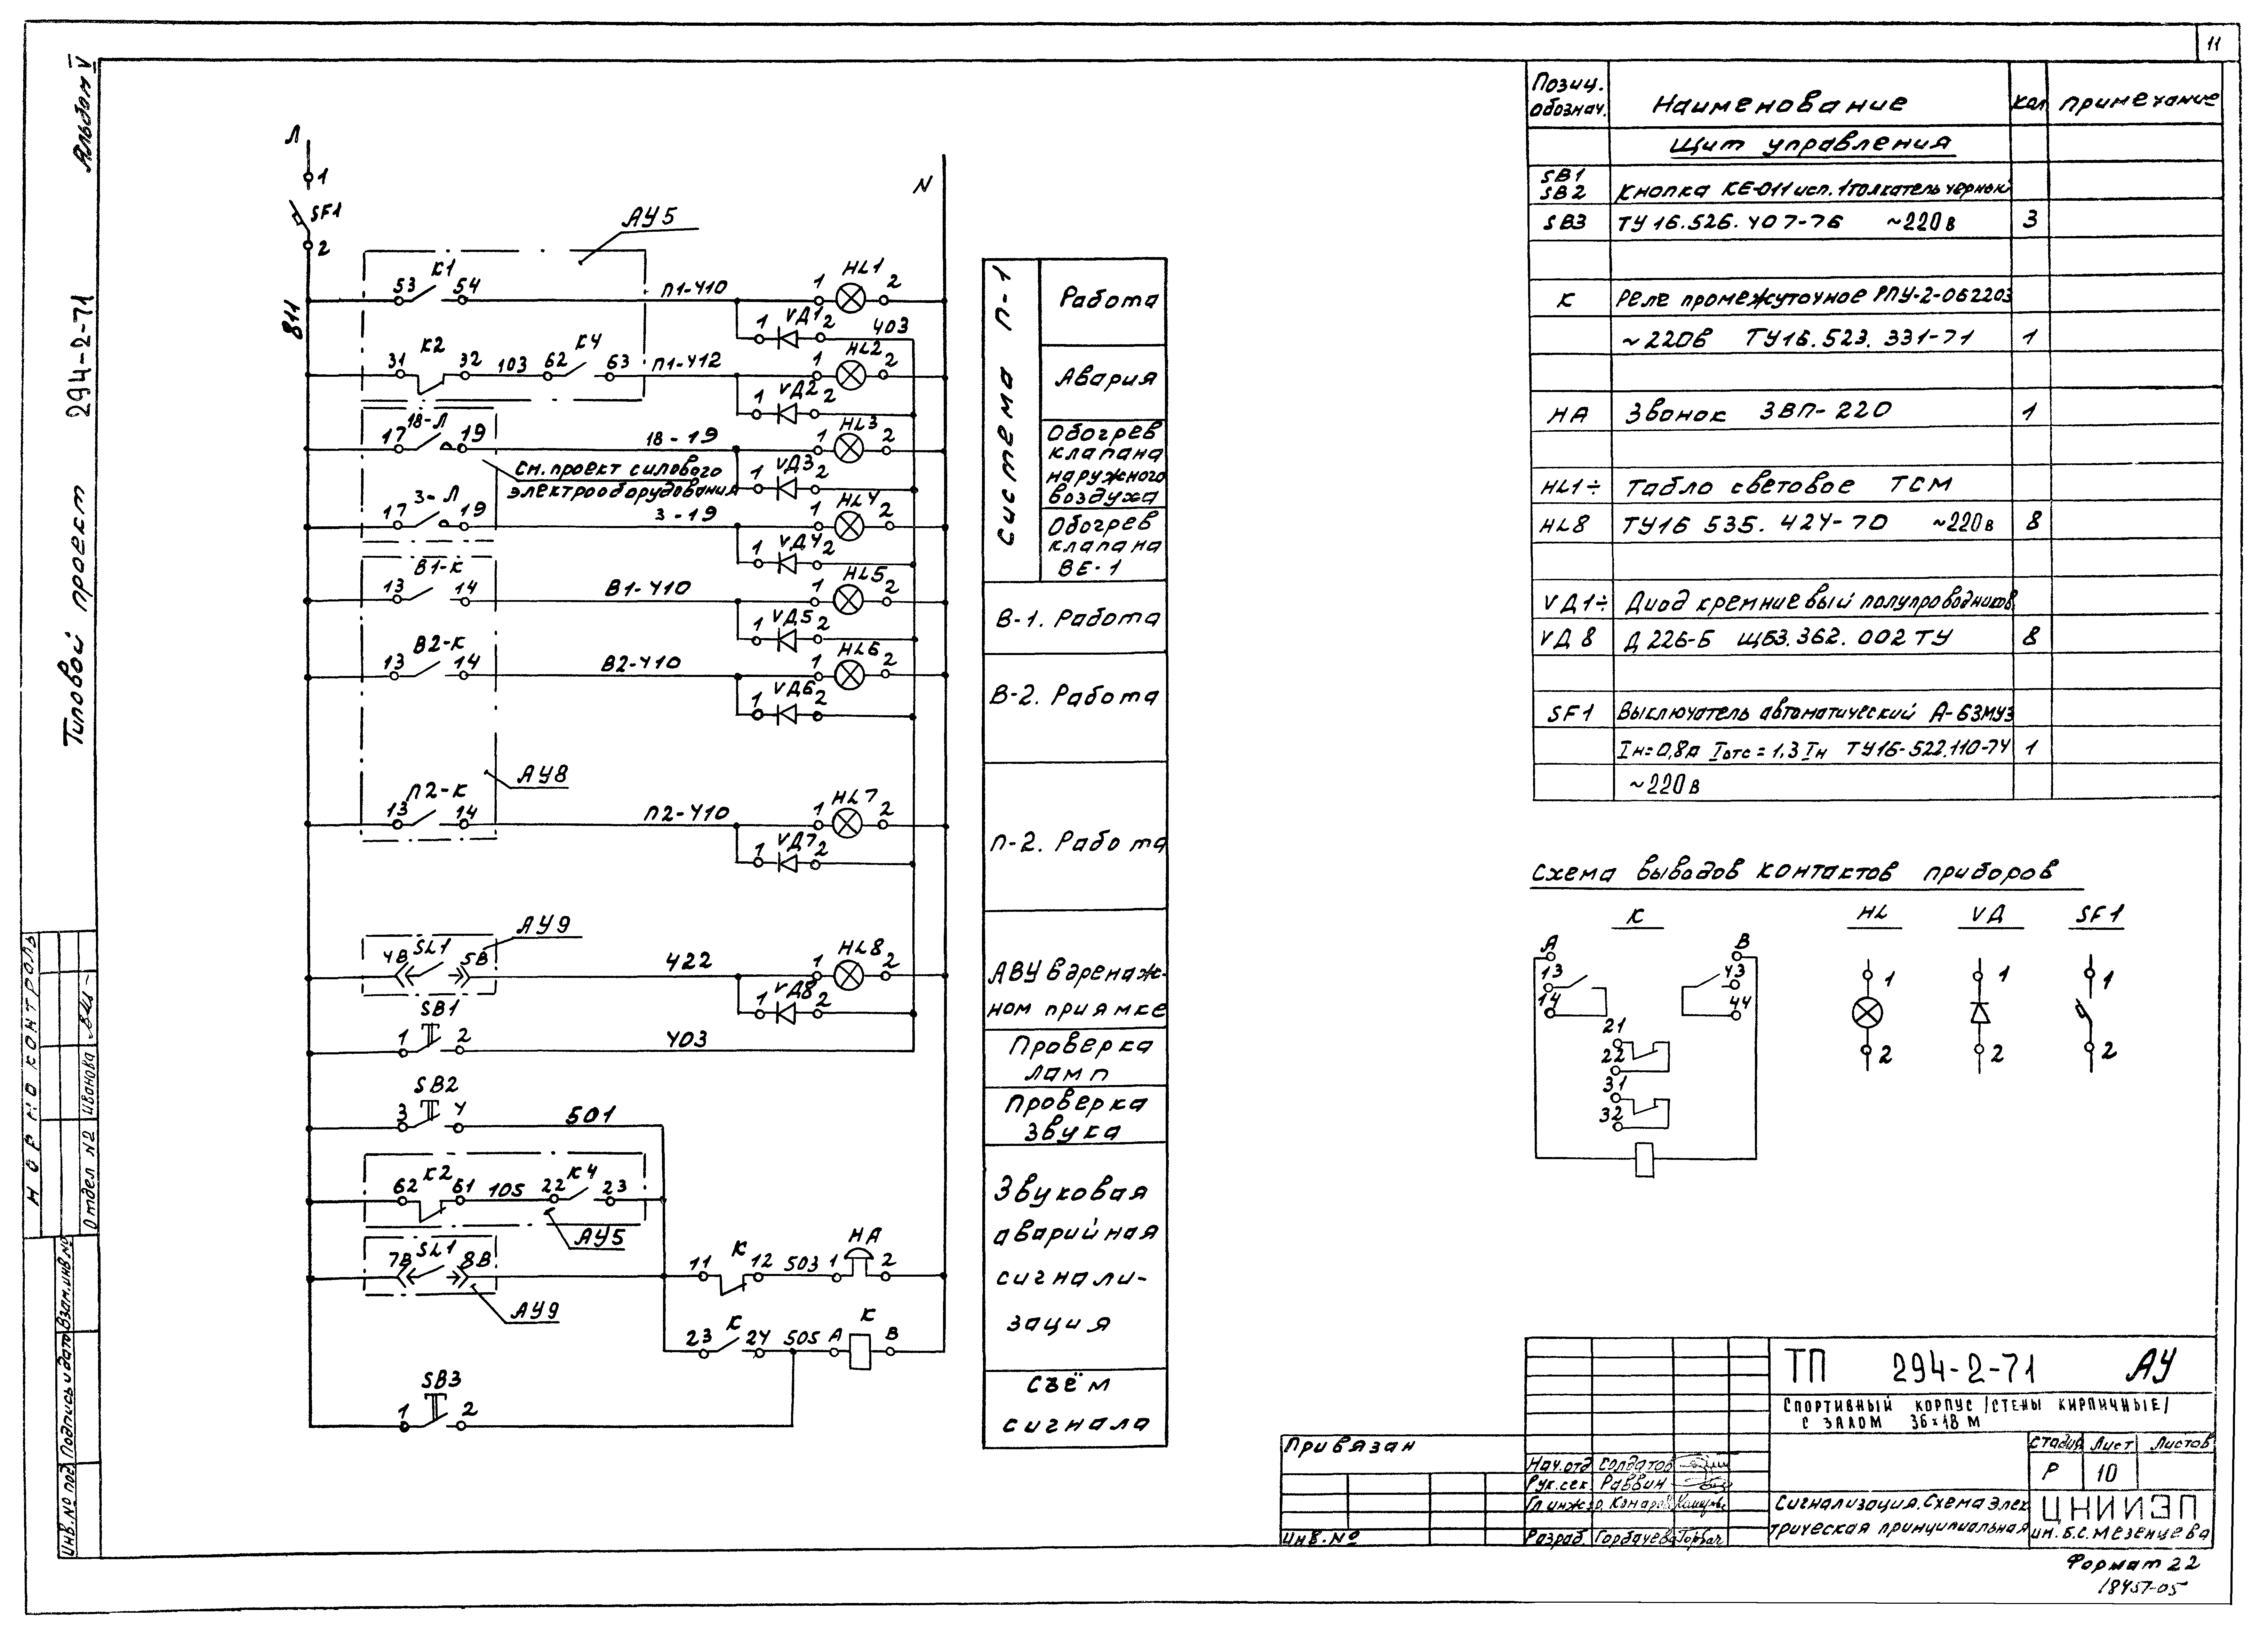 11
Альбом V
Типовой проект 294-2-71
Л
1
SF1
2
811
N
АУ5
К1
53 54
П1-410
1 HL1 2
1 VД1 2
403
К2
31 32 103 62 К4 63
П1-412
1 HL2 2
1 VД2 2
18-Л
17 19
18-19
1 HL3 2
1 VД3 2
см. проект силового
электрооборудования
3-Л
17 19
3-19
1 HL4 2
1 VД4 2
В1-К
13 14
В1-410
1 HL5 2
1 VД5 2
В2-К
13 14
В2-410
1 HL6 2
1 VД6 2
АУ8
П2-К
13 14
П2-410
1 HL7 2
1 VД7 2
АУ9
4В SL1 5В
422
1 HL8 2
1 VД8 2
SB1
1 2
403
SB2
3 4
501
К2 К4
62 61 105 22 23
АУ5
SL1
7В 8В
АУ9
11 К 12 503 1 НА 2
23 К 24 505 А К В
SB3
1 2
Система П-1
Работа
Авария
Обогрев
клапана
наружного
воздуха
Обогрев
клапана
ВЕ-1
В-1. Работа
В-2. Работа
П-2. Работа
АВУ в дренаж-
ном приямке
Проверка
ламп
Проверка
звука
Звуковая
аварийная
сигнали-
зация
Съём
сигнала
Позиц. обознач. Наименование Кол Примечание
Щит управления
SB1
SB2 Кнопка КЕ-011 исп. 1 толкатель черный
SB3 ТУ16.526.407-76 ~220в 3
К Реле промежуточное РПУ-2-062203
~220в ТУ16.523.331-71 1
НА Звонок ЗВП-220 1
HL1÷ Табло световое ТСМ
HL8 ТУ16 535.424-70 ~220в 8
VД1÷ Диод кремниевый полупроводников.
VД8 Д226-Б ЩБ3.362.002 ТУ 8
SF1 Выключатель автоматический А-63МУ3
Iн=0,8а Iотс=1,3Iн ТУ16-522.110-74 1
~220в
Схема выводов контактов приборов
К HL VД SF1
А В
13 43
14 44
21
22
31
32
1 1 1
2 2 2
ТП 294-2-71 АУ
Спортивный корпус /стены кирпичные/
с залом 36×18 м
Стадия Лист Листов
Р 10
Сигнализация. Схема элек
трическая принципиальная
ЦНИИЭП
им. Б.С. Мезенцева
Нач.отд Солдатов
Рук.сек. Раввин
Гл.инж.
Разраб. Горбачева
Привязан
Инв.№
Формат 22
18457-05
Нормоконтроль
Отдел №2 Иванова
Взам.инв.№
Подпись и дата
Инв.№ под